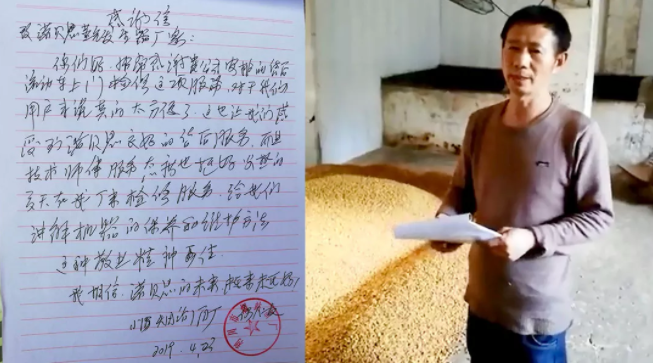 感谢信
致诺贝思蒸汽发生器厂家：
你们好，很感谢贵公司安排的售后
流动车上门检修这项服务，对于我们
用户来说真的太方便了，这也让我们感
受到诺贝思良好的售后服务，而且
技术师傅服务态度也挺好
天在我厂来检修服务，给我们
讲解机器的保养和维护方法
这种敬业精神可佳
我相信，诺贝思的未来，越来越好！
2019.4.23